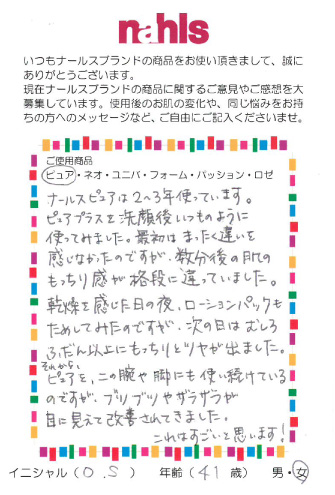 nahls
いつもナールスブランドの商品をお使い頂きまして、誠に
ありがとうございます。
現在ナールスブランドの商品に関するご意見やご感想を大
募集しています。使用後のお肌の変化や、同じ悩みをお持
ちの方へのメッセージなど、ご自由にご記入くださいませ。
ご使用商品
ピュア・ネオ・ユニバ・フォーム・パッション・ロゼ
ナールスピュアは2〜3年使っています。
ピュアプラスを洗顔後いつものように
使ってみました。最初はまったく違いを
感じなかったのですが、数分後の肌の
もっちり感が格段に違っていました。
乾燥を感じた日の夜、ローションパックも
ためしてみたのですが、次の日はむしろ
ふだん以上にもっちりとツヤが出ました。
それから、
ピュアを、二の腕や脚にも使い続けている
のですが、ブリブツやザラザラが
目に見えて改善されてきました。
これはすごいと思います!
イニシャル(O.S) 年齢(41歳) 男・女